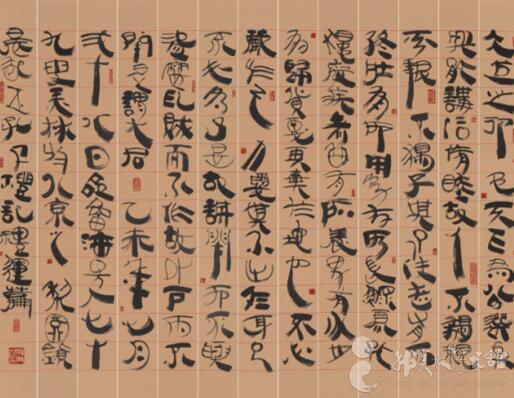 大道之行也天下為公選賢
與能講信修睦故人不獨親
其親不獨子其子使老有所
終壯有所用幼有所長鰥寡孤
獨廢疾者皆有所養男有分女
有歸貨惡其棄於地也不必
藏於己力惡其不出於身也
不必為己是故謀閉而不興
盜竊亂賊而不作故外戶而不
閉是謂大同 乙未年七月
弍十八日 人七十
九 美林 北京
孔子禮記禮運篇